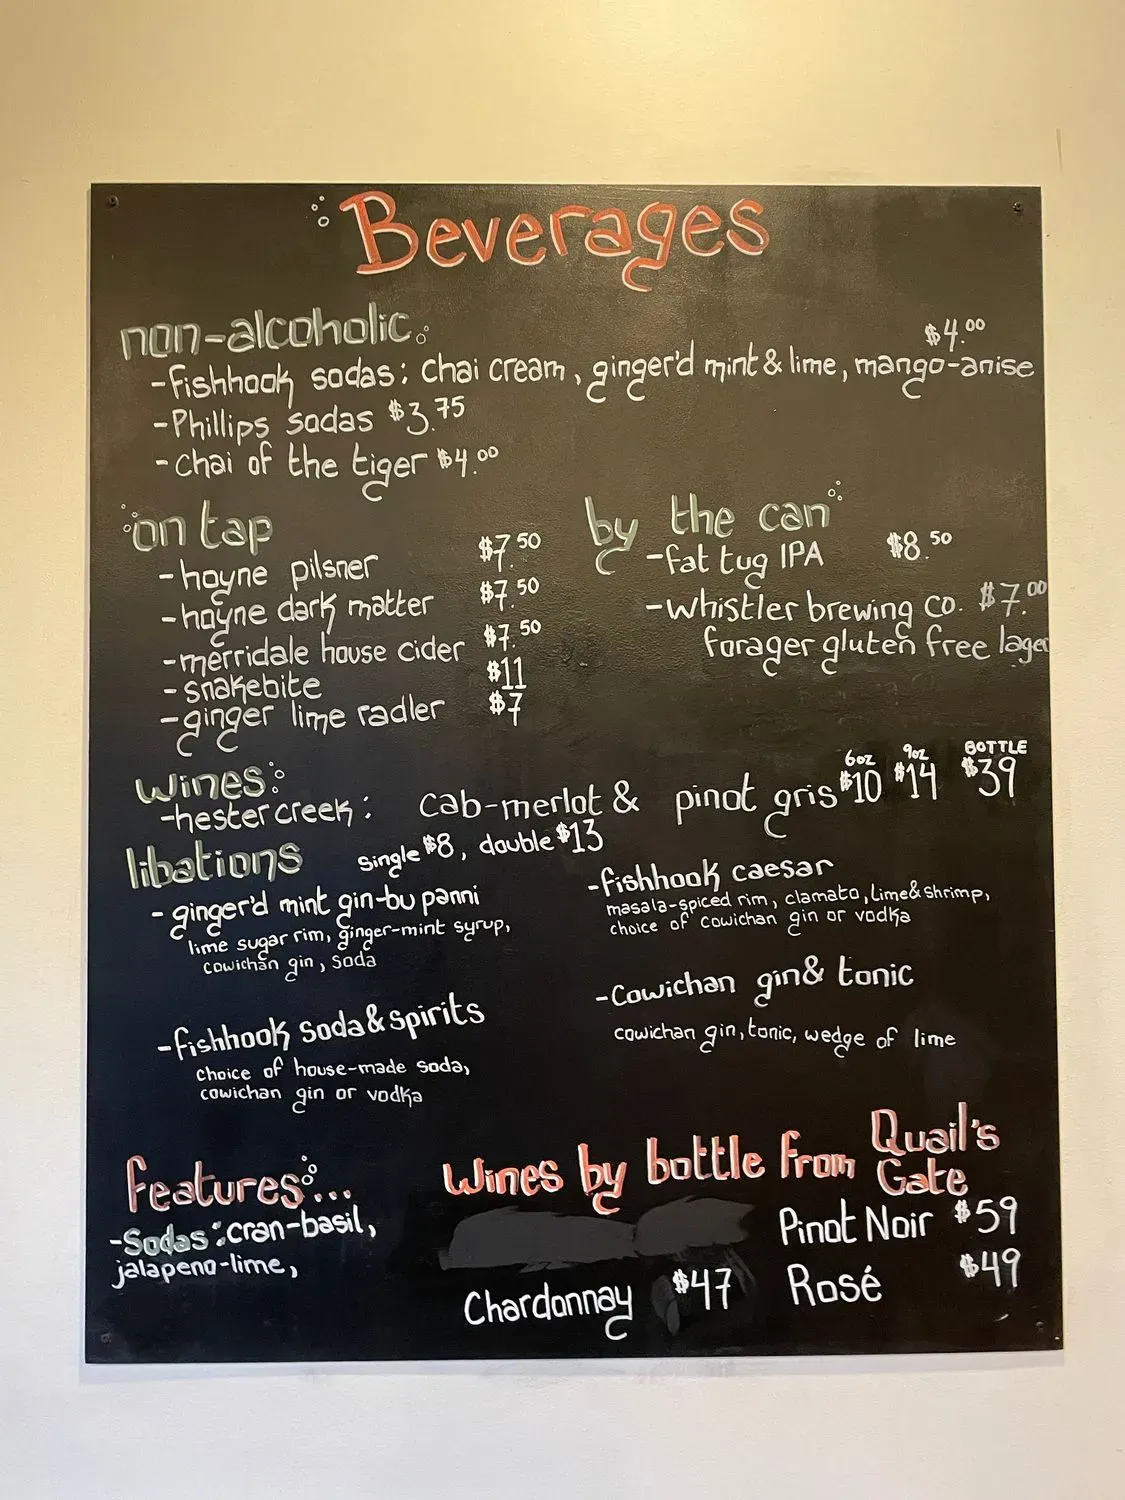 Beverages
non-alcoholic:
$4.00
-fishhook sodas: chai cream, ginger'd mint & lime, mango-anise
-Phillips sodas $3.75
-chai of the tiger $4.00
on tap
-hoyne pilsner $7.50
-hoyne dark matter $7.50
-merridale house cider $7.50
-snakebite $11
-ginger lime radler $7
by the can
-fat tug IPA $8.50
-whistler brewing co. $7.00
forager gluten free lager
wines:
6oz 9oz BOTTLE
-hester creek: cab-merlot & pinot gris $10 $14 $39
libations single $8, double $13
-ginger'd mint gin-bu panni
lime sugar rim, ginger-mint syrup,
cowichan gin, soda
-fishhook soda & spirits
choice of house-made soda,
cowichan gin or vodka
-fishhook caesar
masala-spiced rim, clamato, lime & shrimp,
choice of cowichan gin or vodka
-Cowichan gin & tonic
cowichan gin, tonic, wedge of lime
features...
-Sodas: cran-basil,
jalapeno-lime,
Wines by bottle from Quail's
Gate
Pinot Noir $59
Chardonnay $47 Rosé $49